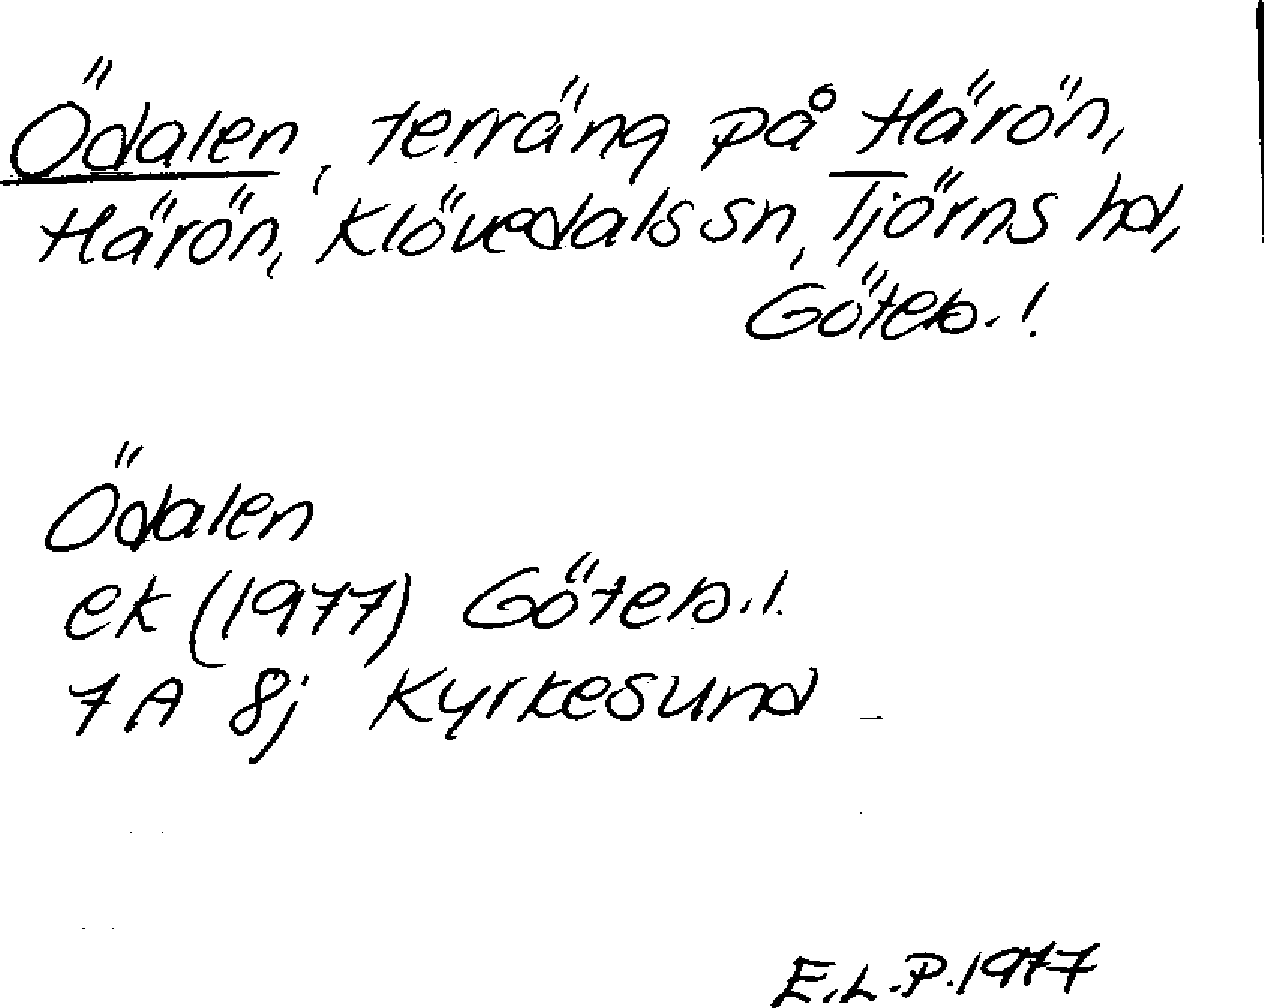 Ödalen, terräng på Härön,
Härön, Klövedals sn, Tjörns hd,
Göteb.!
Ödalen
ek (1977) Göteb.!
7A 8j Kyrkesund
E.L.P. 1977